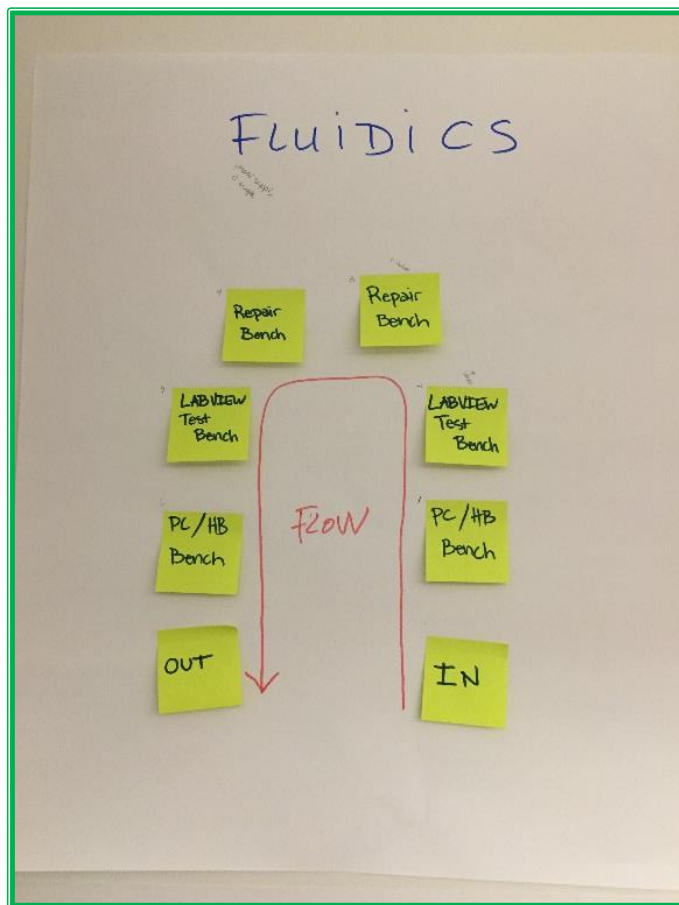 FLUiDiCS
Repair
Bench
Repair
Bench
LABVIEW
Test
Bench
LABVIEW
Test
Bench
FLOW
PC/HB
Bench
PC/HB
Bench
OUT
IN